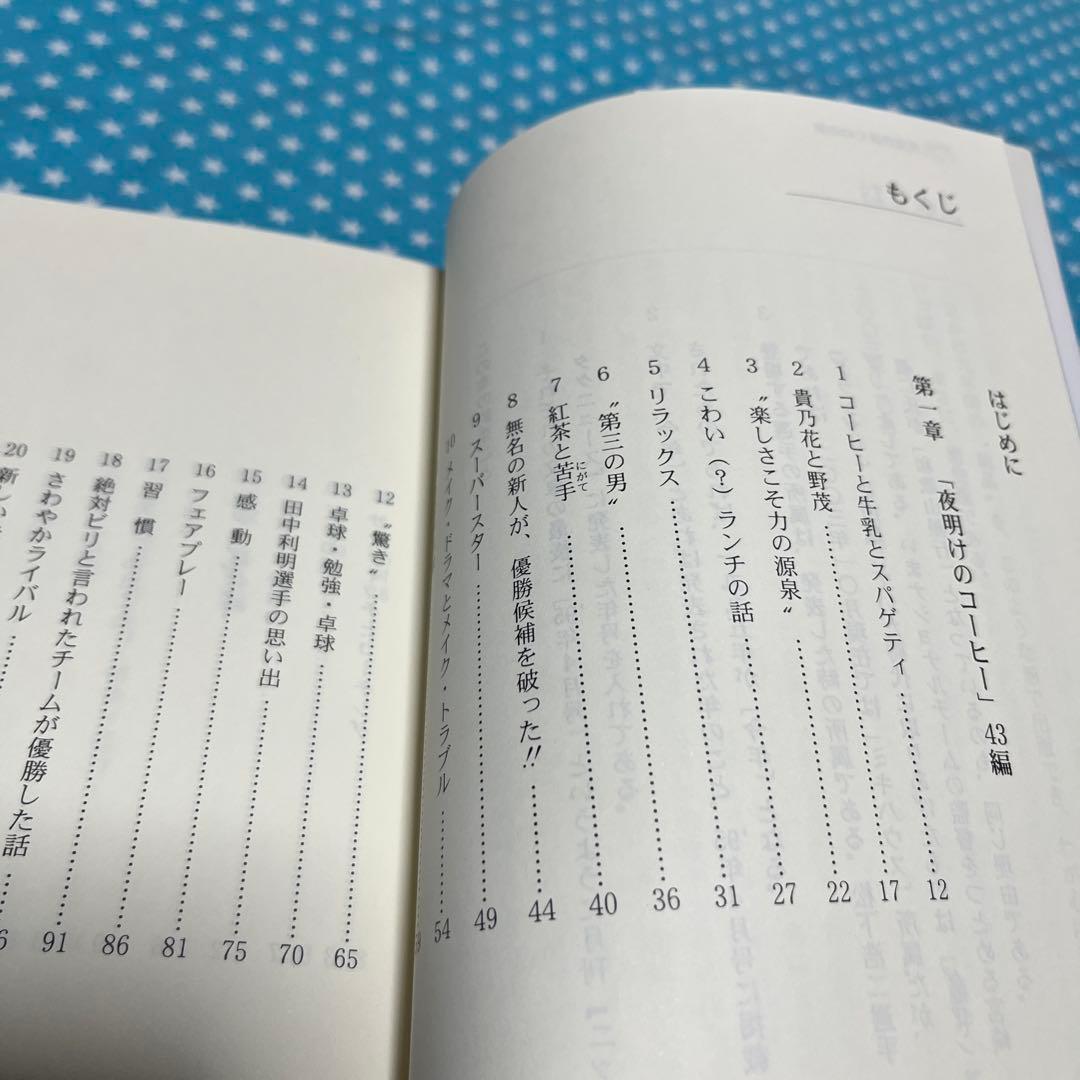 もくじ
はじめに
第一章 「夜明けのコーヒー」 43編
1 コーヒーと牛乳とスパゲティ……12
2 貴乃花と野茂……17
3 〝楽しさこそ力の源泉〟……22
4 こわい(?)ランチの話……27
5 リラックス……31
6 〝第三の男〟……36
7 紅茶と苦手……40
にがて
8 無名の新人が、優勝候補を破った!!……44
9 スーパースター……49
10 メイク・ドラマとメイク・トラブル……54
12 〝驚き〟……65
13 卓球・勉強・卓球……70
14 田中利明選手の思い出……75
15 感 動……81
16 フェアプレー……86
17 習 慣……91
18 絶対ビリと言われたチームが優勝した話……
19 さわやかライバル……
20 新しい